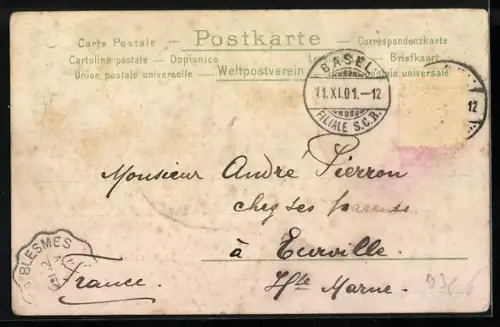 Carte Postale — Postkarte — Correspondenzkarte
Cartolina postale — Dopisnice Briefkaart
Union postale universelle — Weltpostverein postale universale
BASEL
11.XI.01.—12
FILIALE S.C.B.
12
Monsieur André Pierron
chez ses parents
à Eurville.
Hte Marne.
France.
BLESMES